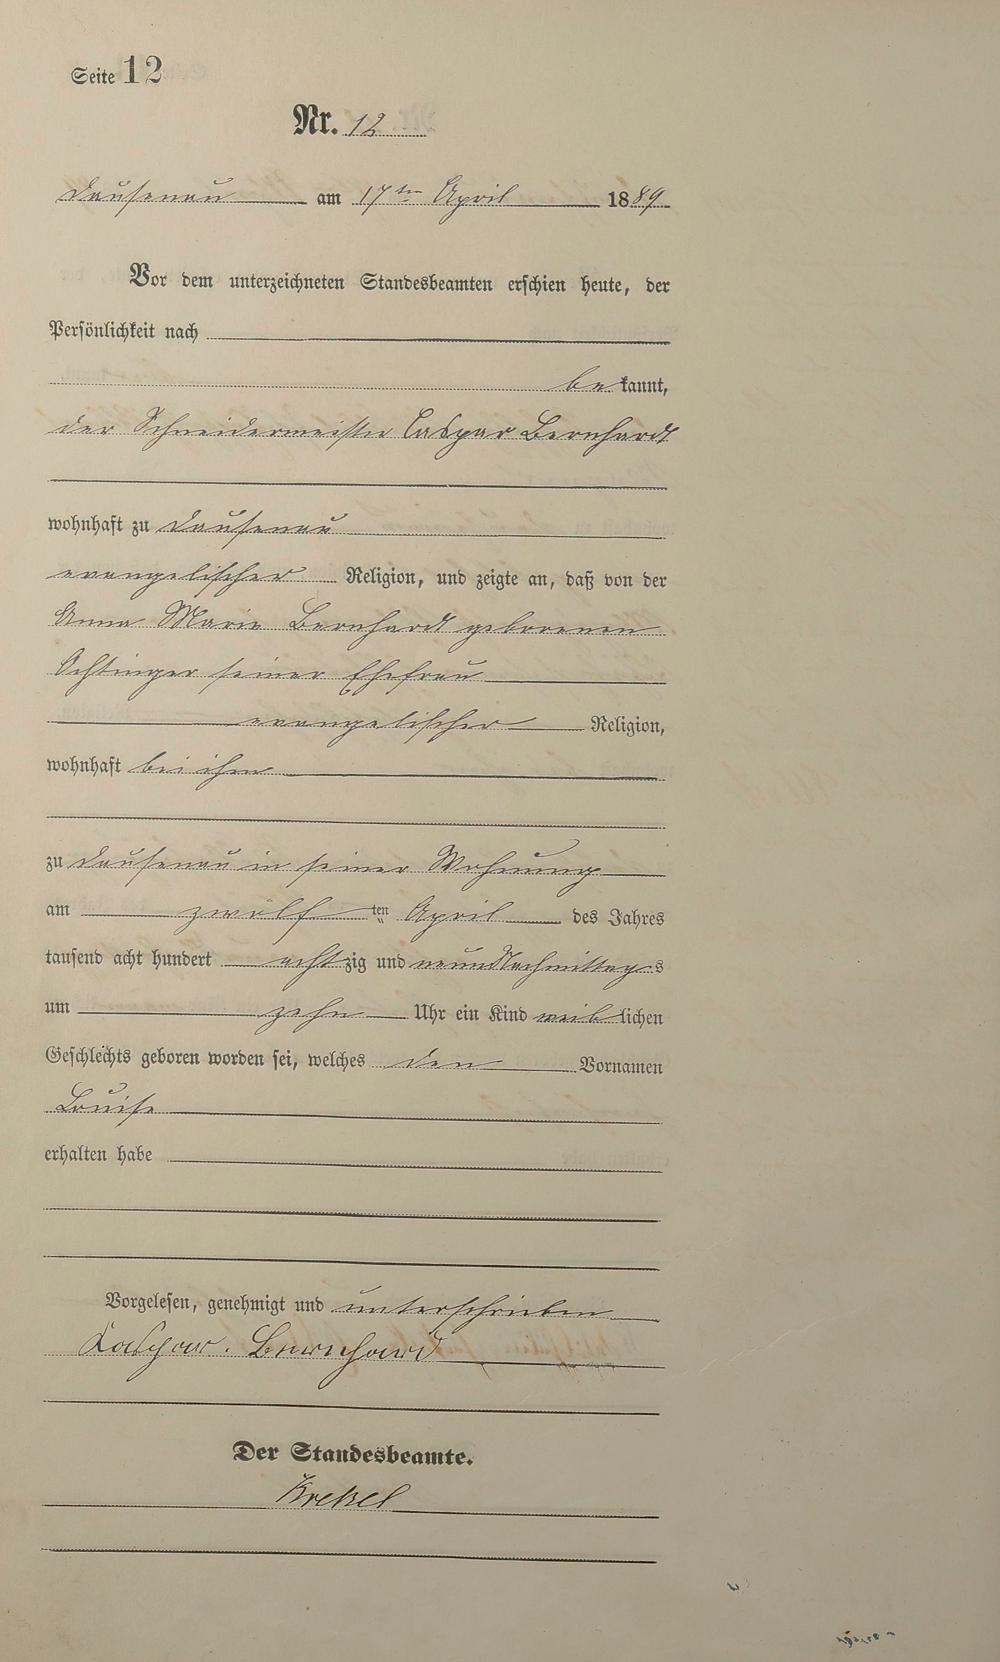 Seite 12
Nr. 12
Dausenau am 17ten April 1889
Vor dem unterzeichneten Standesbeamten erschien heute, der
Persönlichkeit nach
bekannt,
der Schneidermeister Caspar Bernhardt
wohnhaft zu Dausenau
evangelischer Religion, und zeigte an, daß von der
Anna Marie Bernhardt geborenen
seiner Ehefrau
evangelischer Religion,
wohnhaft bei ihm
zu Dausenau in seiner Wohnung
am zwölften April des Jahres
tausend acht hundert achtzig und neun Nachmittags
um zehn Uhr ein Kind weiblichen
Geschlechts geboren worden sei, welches den Vornamen
Louise
erhalten habe
Vorgelesen, genehmigt und unterschrieben
Kaspar. Bernhard
Der Standesbeamte.